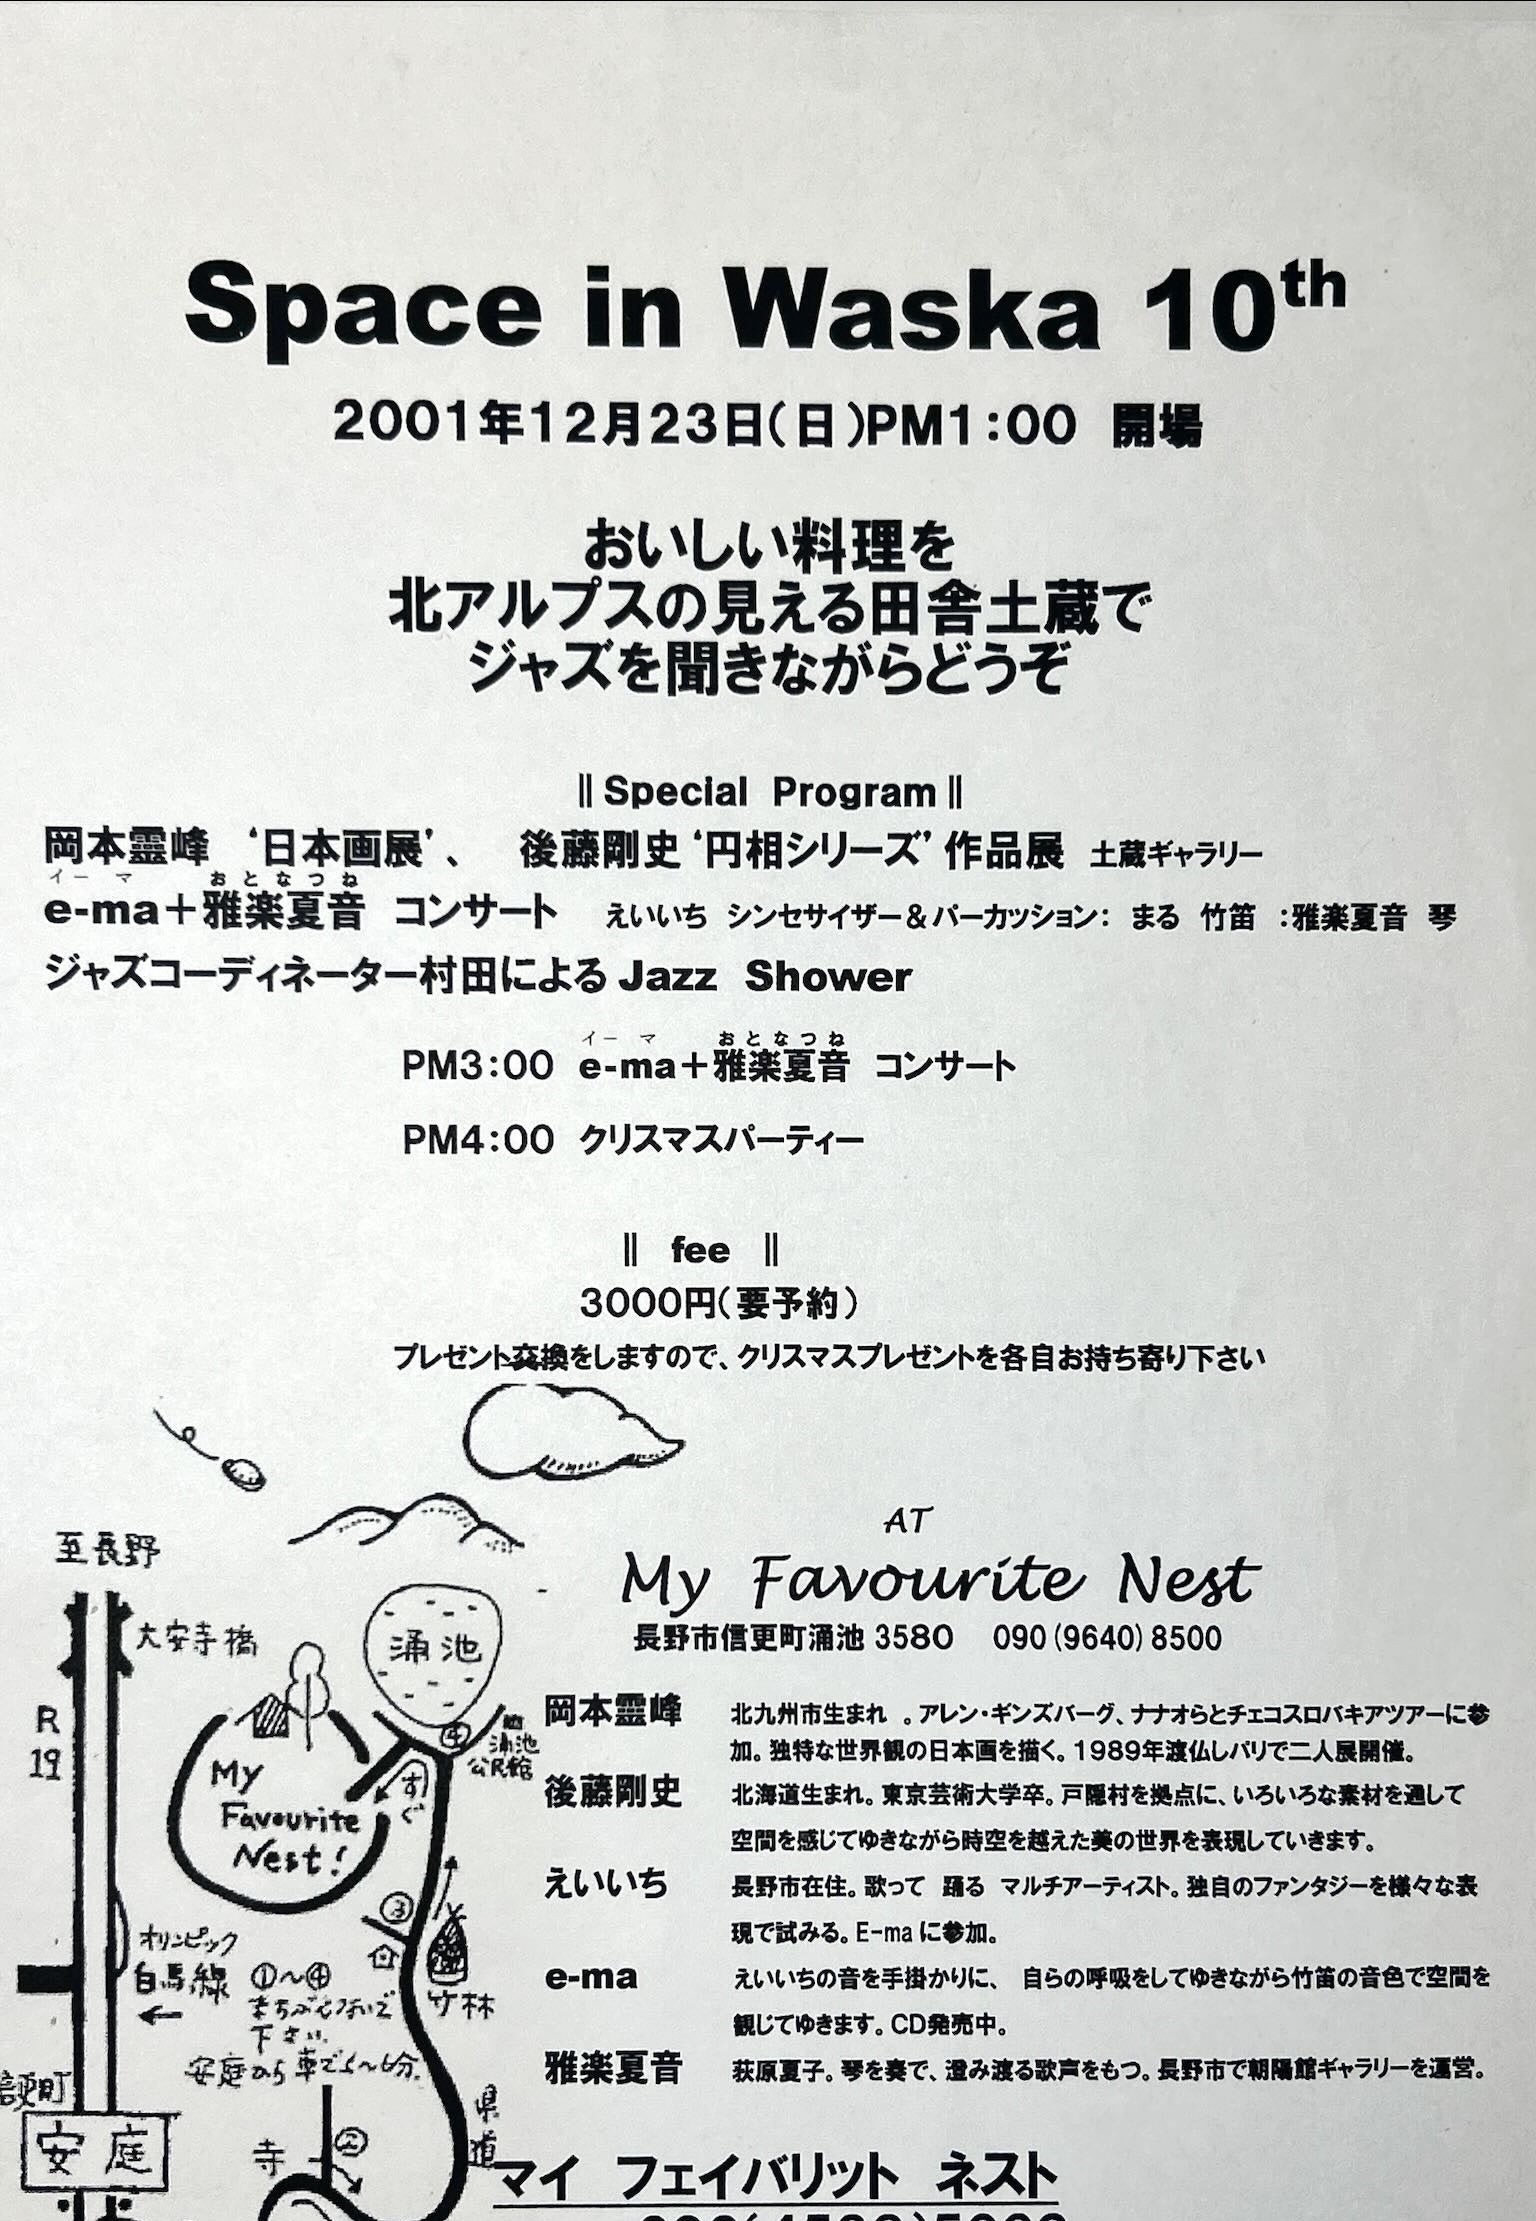 Space in Waska 10th
2001年12月23日(日)PM1:00 開場
おいしい料理を
北アルプスの見える田舎土蔵で
ジャズを聞きながらどうぞ
‖Special Program‖
岡本霊峰 ‘日本画展’、 後藤剛史‘円相シリーズ’作品展 土蔵ギャラリー
イーマ おとなつね
e-ma+雅楽夏音 コンサート えいいち シンセサイザー&パーカッション: まる 竹笛 :雅楽夏音 琴
ジャズコーディネーター村田によるJazz Shower
イーマ おとなつね
PM3:00 e-ma+雅楽夏音 コンサート
PM4:00 クリスマスパーティー
‖ fee ‖
3000円(要予約)
プレゼント交換をしますので、クリスマスプレゼントを各自お持ち寄り下さい
AT
My Favourite Nest
長野市信更町涌池3580 090(9640)8500
岡本霊峰 北九州市生まれ 。アレン・ギンズバーグ、ナナオらとチェコスロバキアツアーに参
加。独特な世界観の日本画を描く。1989年渡仏しパリで二人展開催。
後藤剛史 北海道生まれ。東京芸術大学卒。戸隠村を拠点に、いろいろな素材を通して
空間を感じてゆきながら時空を越えた美の世界を表現していきます。
えいいち 長野市在住。歌って 踊る マルチアーティスト。独自のファンタジーを様々な表
現で試みる。E-maに参加。
e-ma えいいちの音を手掛かりに、 自らの呼吸をしてゆきながら竹笛の音色で空間を
観じてゆきます。CD発売中。
雅楽夏音 荻原夏子。琴を奏で、澄み渡る歌声をもつ。長野市で朝陽館ギャラリーを運営。
マイ フェイバリット ネスト
至長野
大安寺橋
R
19
涌池
④
涌池
公民館
すぐ
My
Favourite
Nest!
③
竹林
オリンピック
白馬線
①〜④
まちがえないで
下さい
安庭から車で5〜6分.
県道
信更町
安庭
寺
②